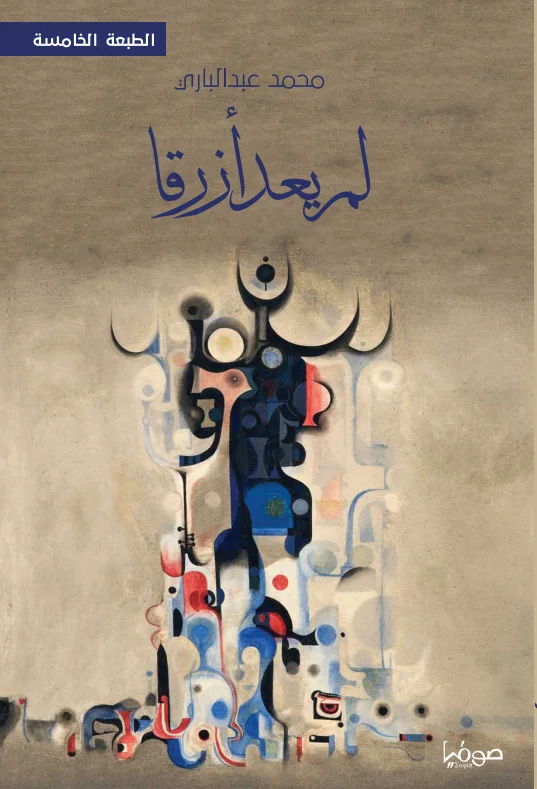 الطبعة الخامسة
محمد عبدالباري
لم يعد أزرقا
صوفيا
Sopia